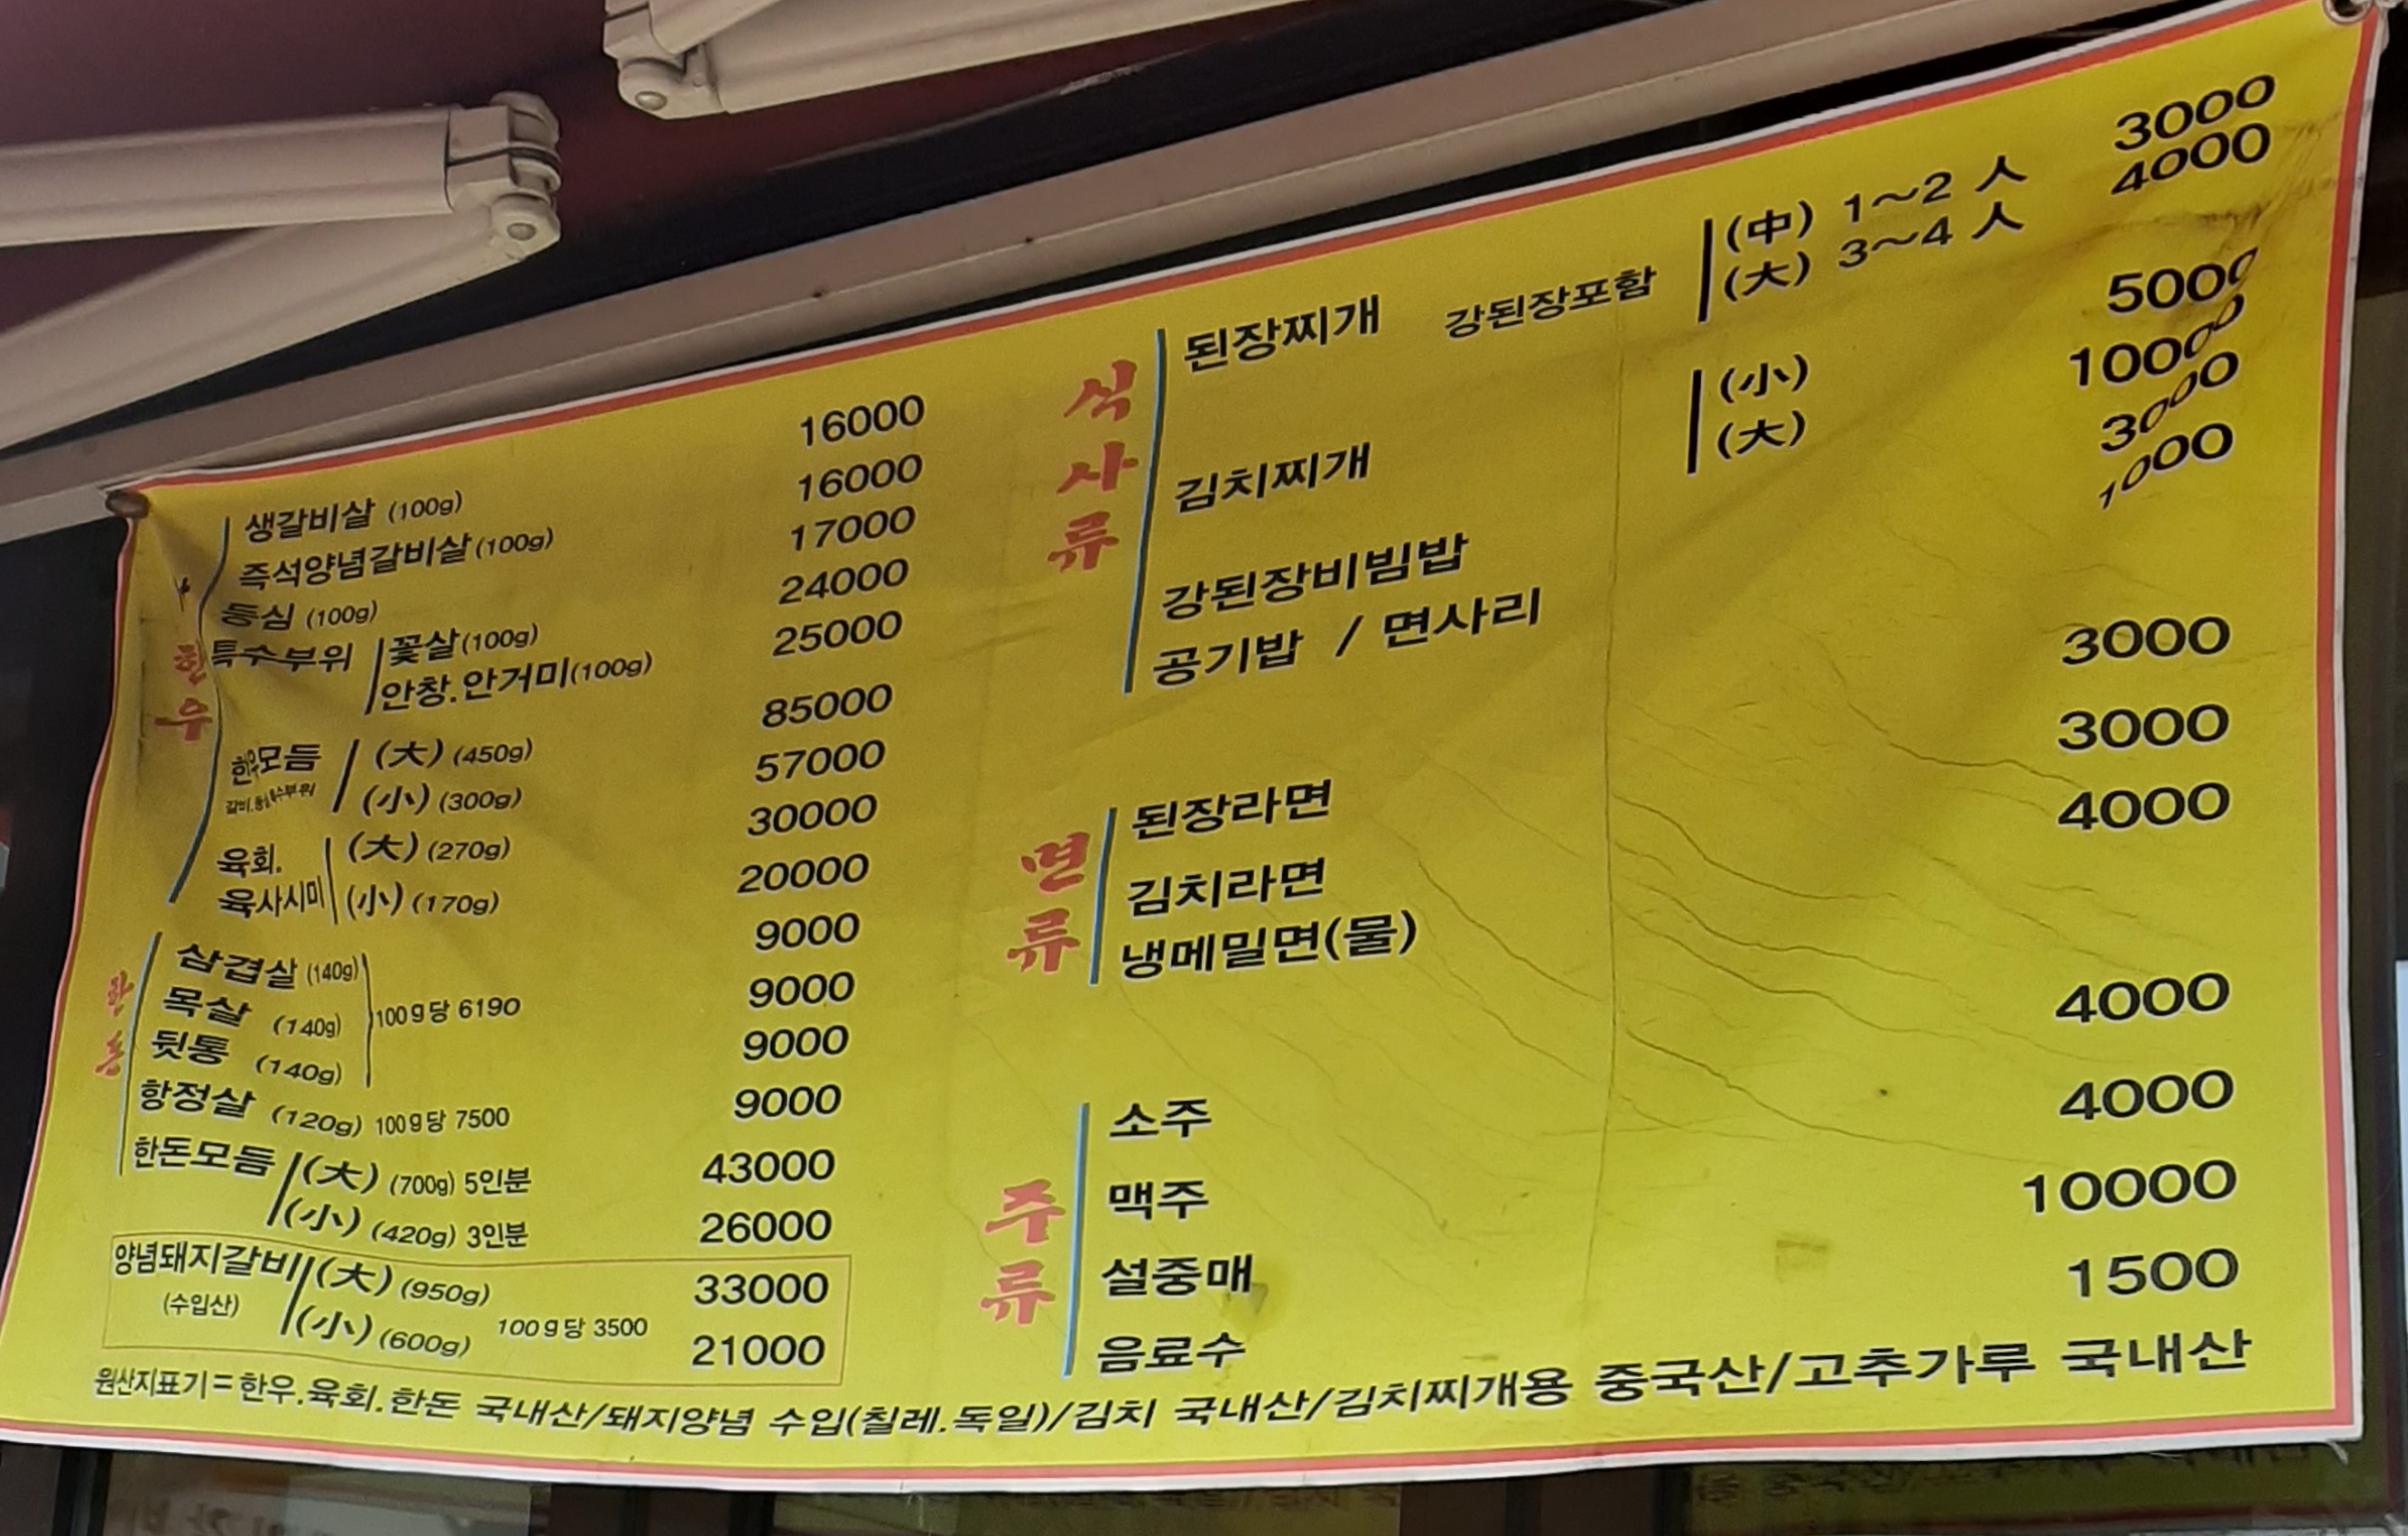 한우
생갈비살 (100g) 16000
즉석양념갈비살 (100g) 16000
등심 (100g) 17000
특수부위 꽃살 (100g) 24000
안창.안거미 (100g) 25000
한우모듬 (大) (450g) 85000
갈비.등심.특수부위 (小) (300g) 57000
육회. (大) (270g) 30000
육사시미 (小) (170g) 20000
한돈
삼겹살 (140g) 9000
목살 (140g) 100g당 6190 9000
뒷통 (140g) 9000
항정살 (120g) 100g당 7500 9000
한돈모듬 (大) (700g) 5인분 43000
(小) (420g) 3인분 26000
양념돼지갈비 (大) (950g) 33000
(수입산) (小) (600g) 100g당 3500 21000
식사류
된장찌개 강된장포함 (中) 1~2 人 3000
(大) 3~4 人 4000
김치찌개 (小) 5000
(大) 10000
강된장비빔밥 3000
공기밥 / 면사리 1000
면류
된장라면 3000
김치라면 3000
냉메밀면(물) 4000
주류
소주 4000
맥주 4000
설중매 10000
음료수 1500
원산지표기=한우.육회.한돈 국내산/돼지양념 수입(칠레.독일)/김치 국내산/김치찌개용 중국산/고추가루 국내산